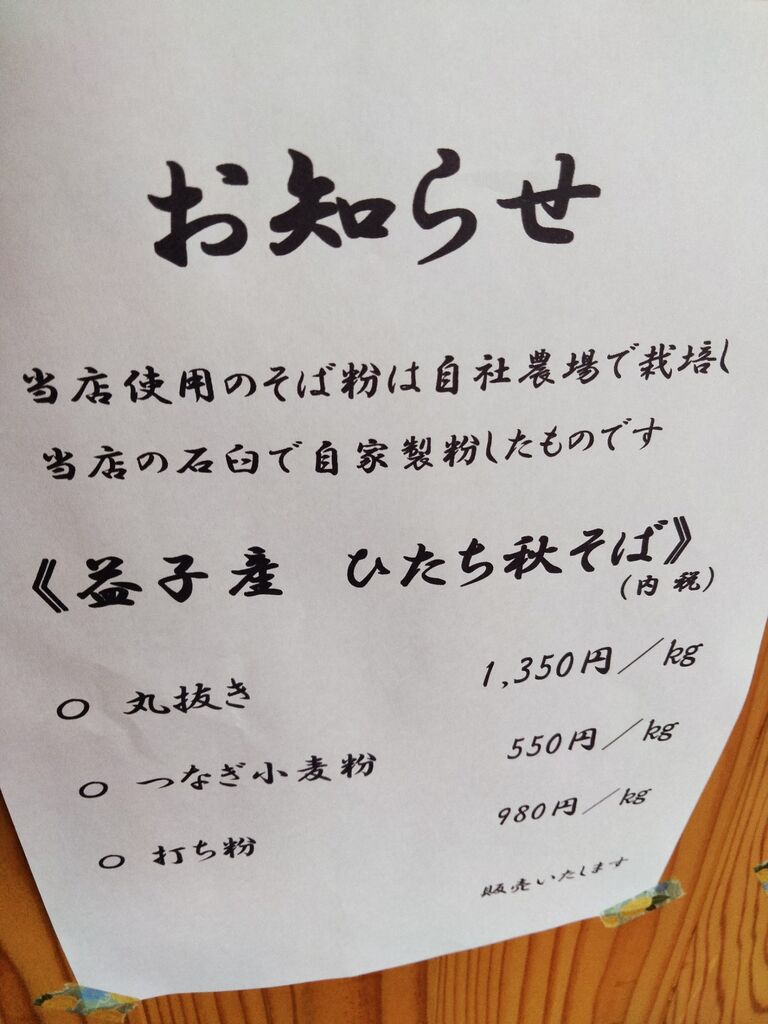 お知らせ
当店使用のそば粉は自社農場で栽培し
当店の石臼で自家製粉したものです
《益子産　ひたち秋そば》
(内 税)
○ 丸抜き 1,350円／kg
○ つなぎ小麦粉 550円／kg
○ 打ち粉 980円／kg
販売いたします